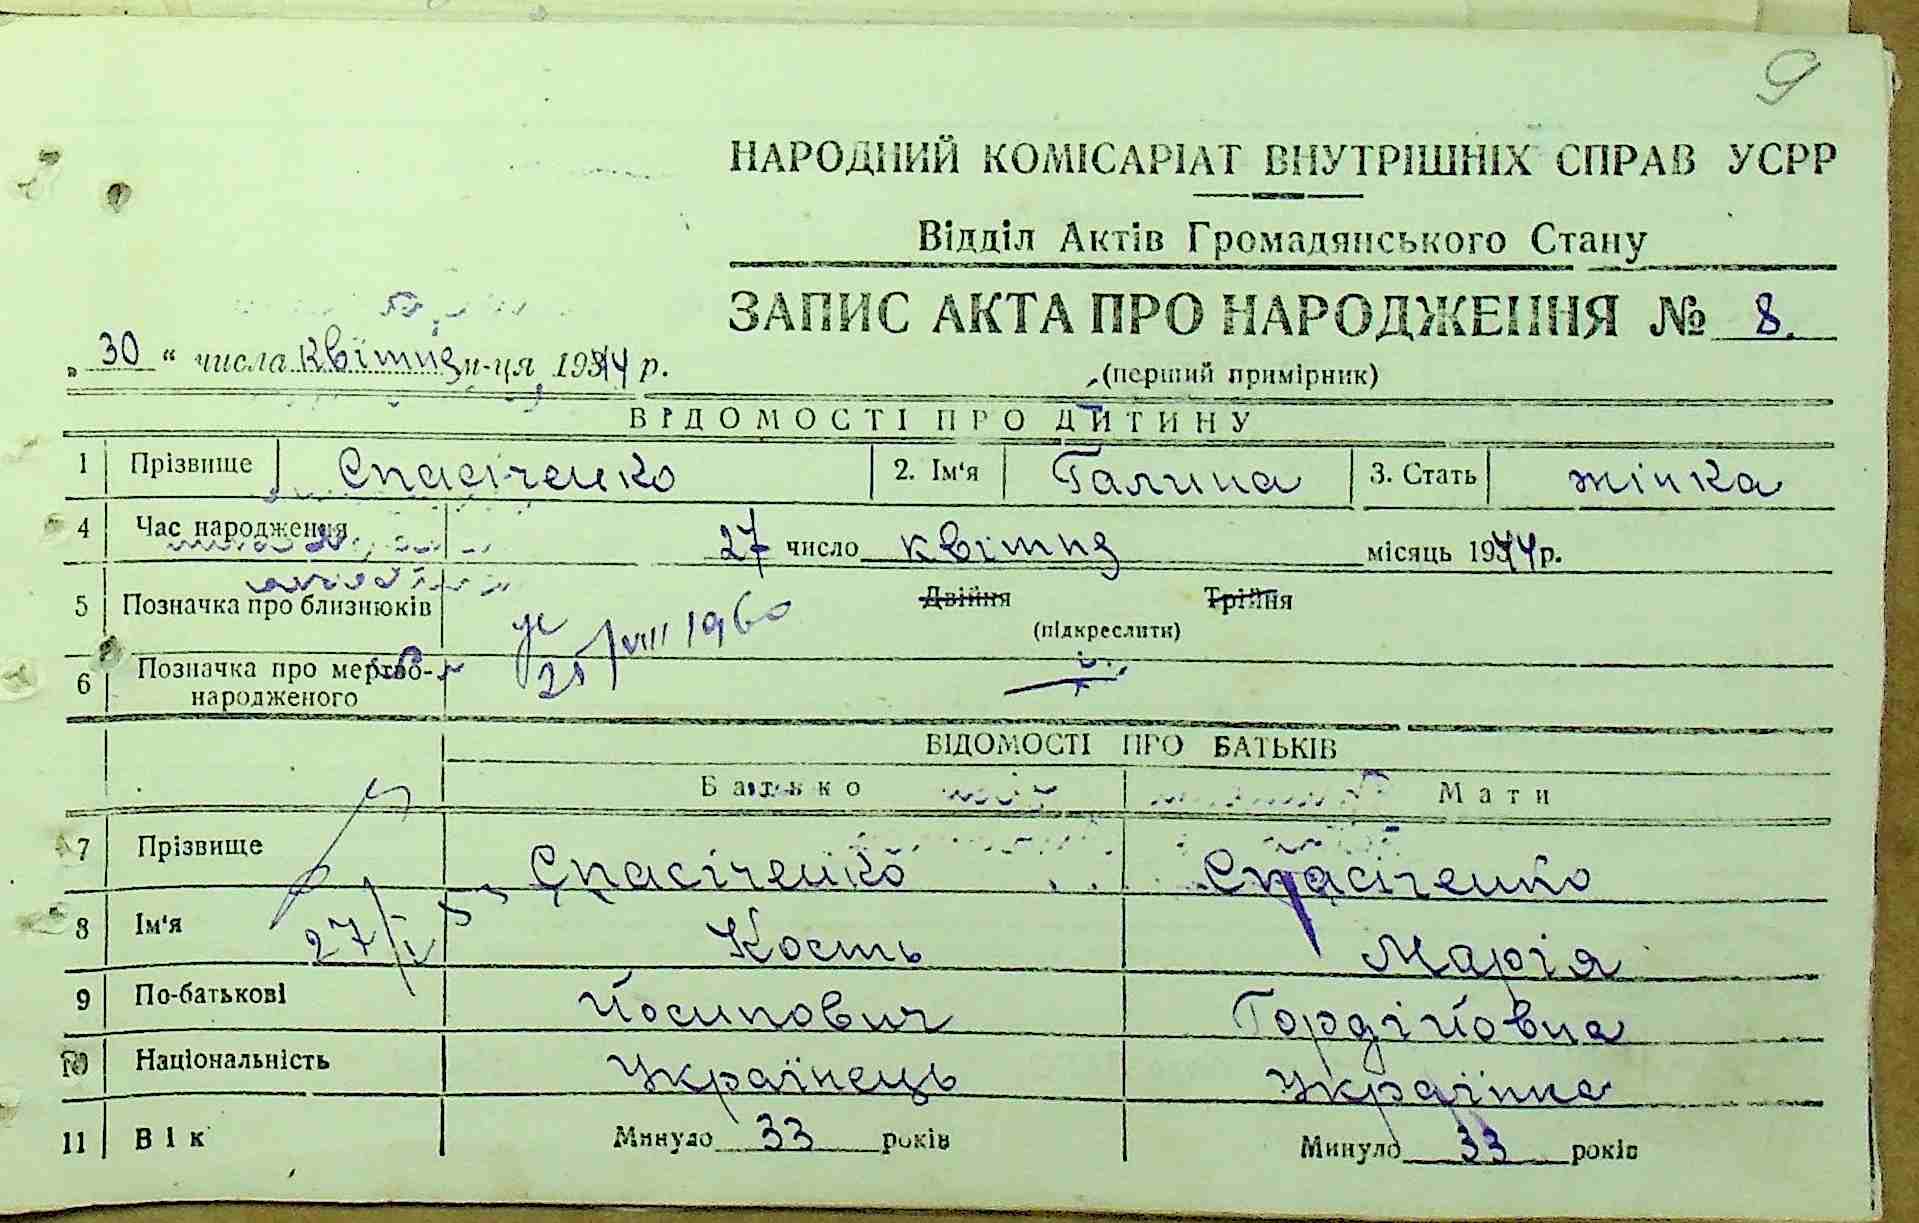 9
НАРОДНИЙ КОМІСАРІАТ ВНУТРІШНІХ СПРАВ УСРР
Відділ Актів Громадянського Стану
ЗАПИС АКТА ПРО НАРОДЖЕННЯ № 8.
„ 30 “ числа квітня м-ця 1944 р.
(перший примірник)
ВІДОМОСТІ ПРО ДИТИНУ
1 Прізвище Спасіченко 2. Ім'я Галина 3. Стать жінка
4 Час народження 27 число квітня місяць 1944 р.
5 Позначка про близнюків Двійня Трійня
(підкреслити)
25/VIII 1960
6 Позначка про мертво-
народженого
ВІДОМОСТІ ПРО БАТЬКІВ
Батько Мати
7 Прізвище Спасіченко Спасіченко
8 Ім'я Кость Марія
9 По-батькові Йосипович Гордійовна
10 Національність Українець Українка
11 Вік Минуло 33 років Минуло 33 років